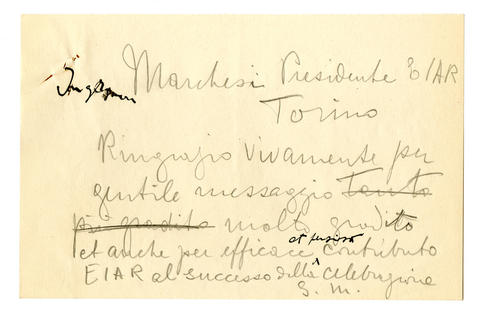 Marchesi Presidente EIAR
Torino
Ringrazio vivamente per
gentile messaggio tanto
più gradito molto gradito
et anche per efficace contributo
EIAR al successo della celebrazione
G. M.